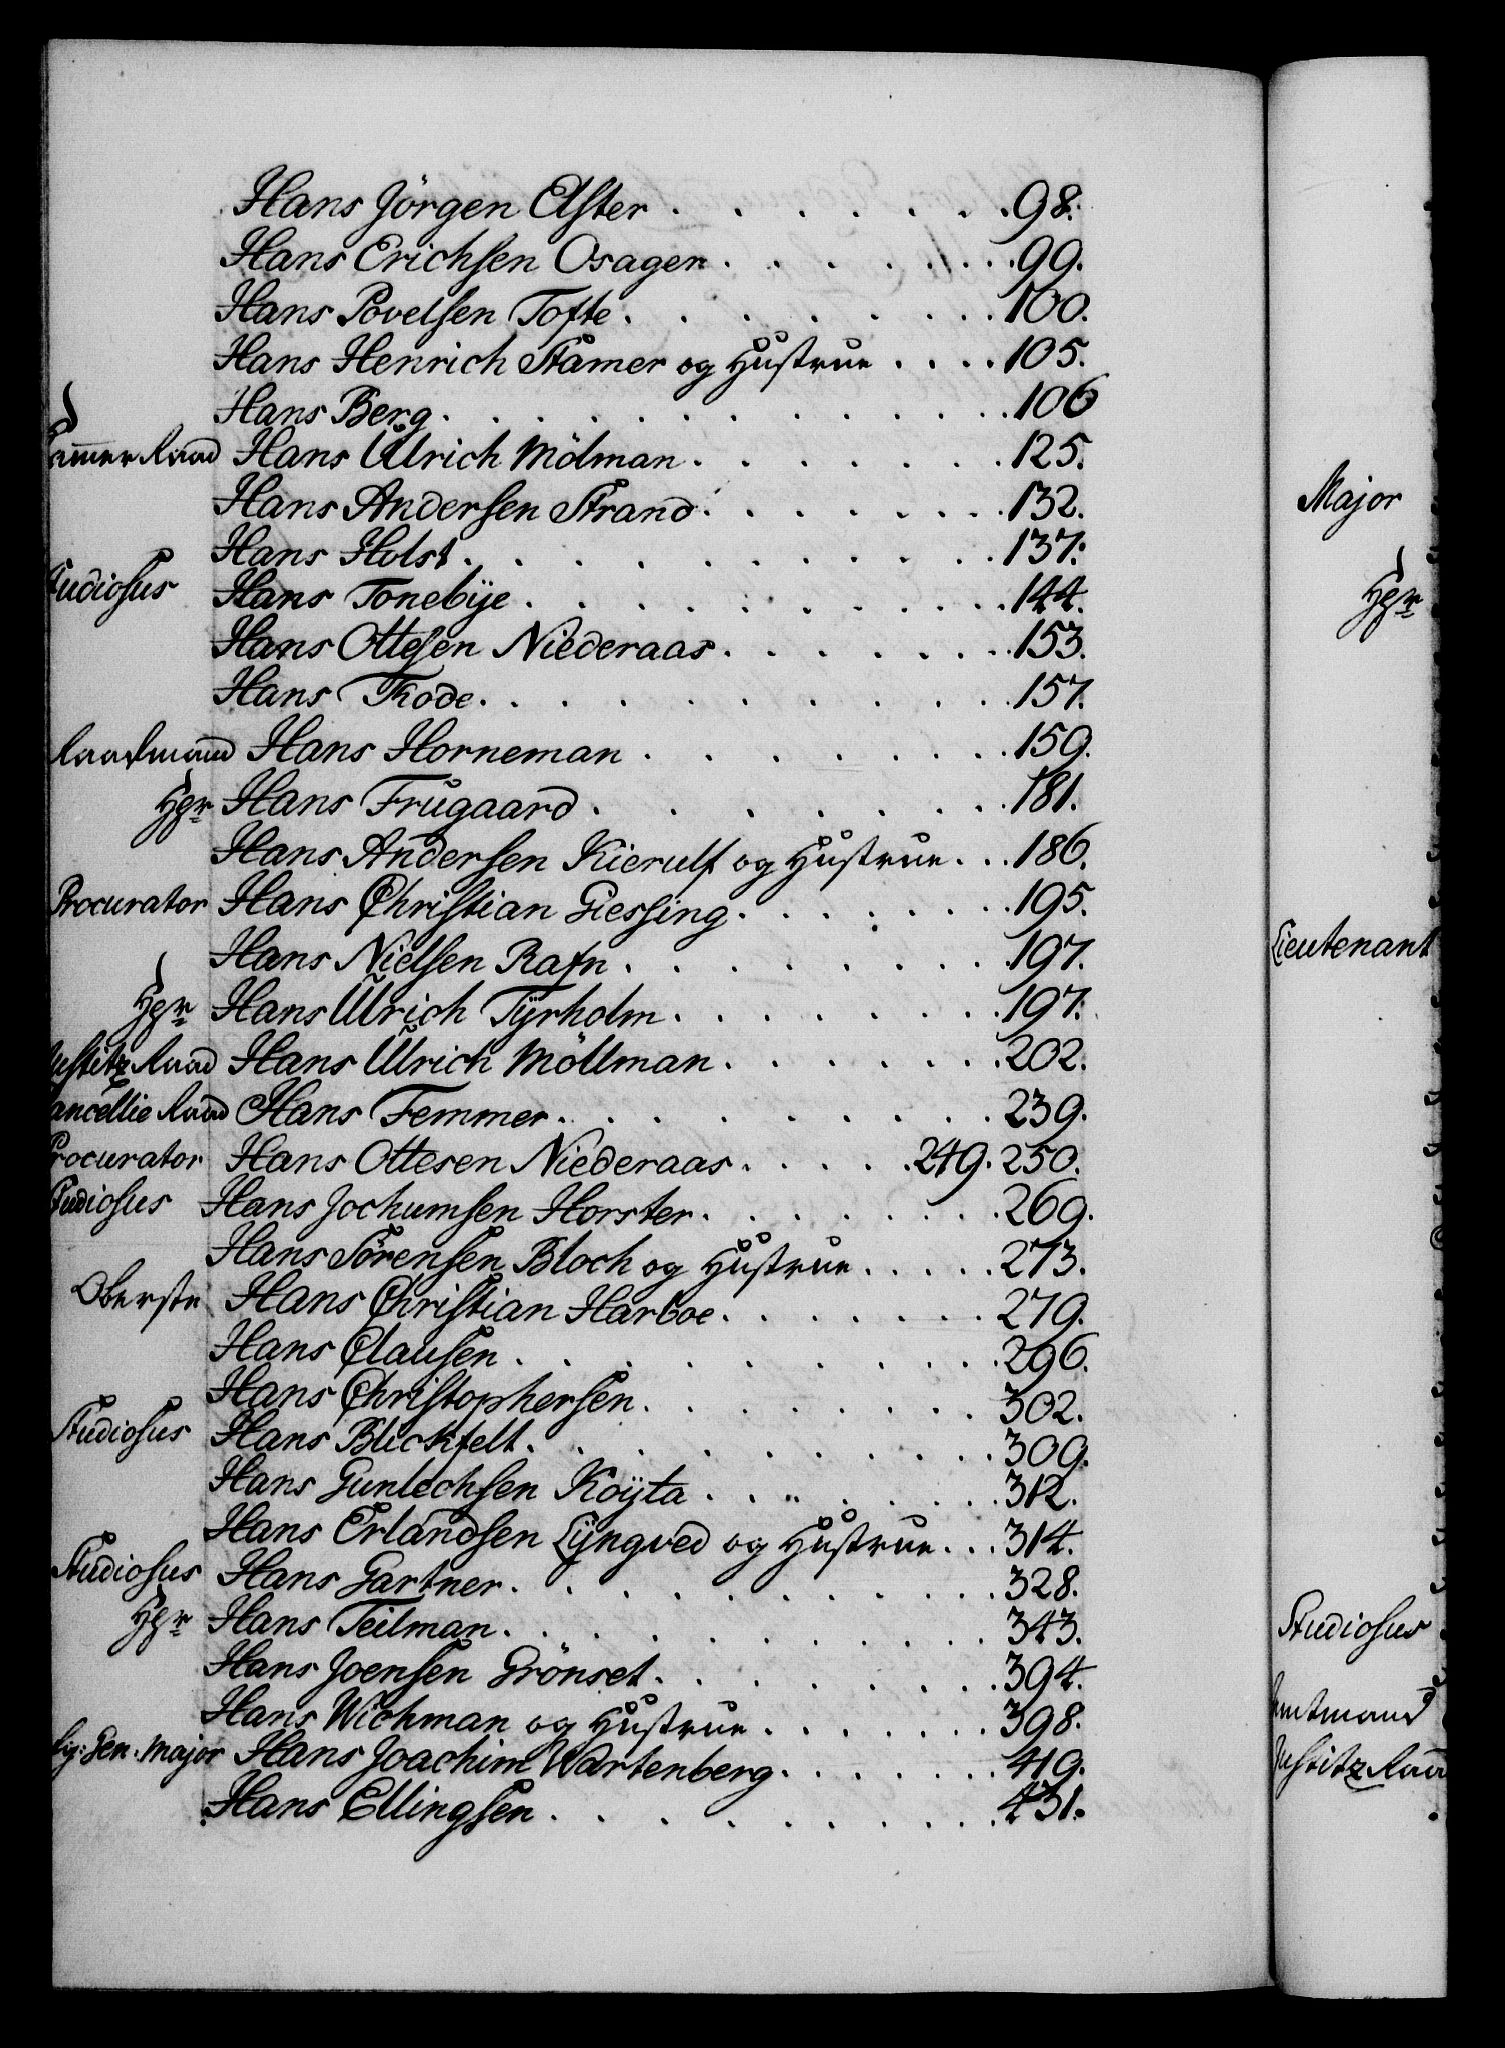 Hans Jörgen Elster . . . . . . 98.
Hans Erichsen Osager . . . . . . 99.
Hans Povelsen Tofte . . . . . . 100.
Hans Henrich Stamer og Hustrue . . . . 105.
Hans Berg . . . . . . 106
Cammer Raad Hans Ulrich Mölman . . . . . . 125.
Hans Andersen Strand . . . . . . 132.
Hans Holst . . . . . . 137.
Studiosus Hans Tonebÿe . . . . . . 144.
Hans Ottesen Niederaas . . . . . . 153.
Hans Tkode . . . . . . 157.
Raadmand Hans Horneman . . . . . . 159.
Hgr Hans Frugaard . . . . . . 181.
Hans Andersen Kierulf og Hustrue . . . 186.
Procurator Hans Christian Giessing . . . . . . 195.
Hans Nielsen Rafn . . . . . . 197.
Hgr Hans Ulrich Tÿrholm . . . . . . 197.
Justitz Raad Hans Ulrich Möllman . . . . . . 202.
Cancellie Raad Hans Femmer . . . . . . 239.
Procurator Hans Ottesen Niederaas . . . . . 249. 250.
Studiosus Hans Jochumsen Horster . . . . . . 269.
Hans Sörensen Bloch og Hustrue . . . . . 273.
Oberste Hans Christian Harboe . . . . . . 279.
Hans Clausen . . . . . . 296.
Hans Christophersen . . . . . . 302.
Studiosus Hans Blickfelt . . . . . . 309.
Hans Gunlechsen Koÿta . . . . . . 312.
Hans Erlandsen Lÿngved og Hustrue . . . 314.
Studiosus Hans Gartner . . . . . . 328.
Hgr Hans Teilman . . . . . . 343.
Hans Joensen Grönset . . . . . . 394.
Hans Wichman og Hustrue . . . . . . 398.
Gen: Major Hans Joachim Wartenberg . . . . . . 419.
Hans Ellingsen . . . . . . 431.
Major
Hgr
Lieutenant
Studiosus
Amtmand
Justitz Raa